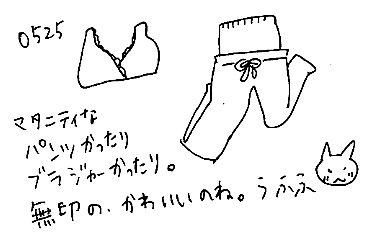 0525
マタニティな
パンツかったり
ブラジャーかったり。
無印の、かわいいのね。うふふ